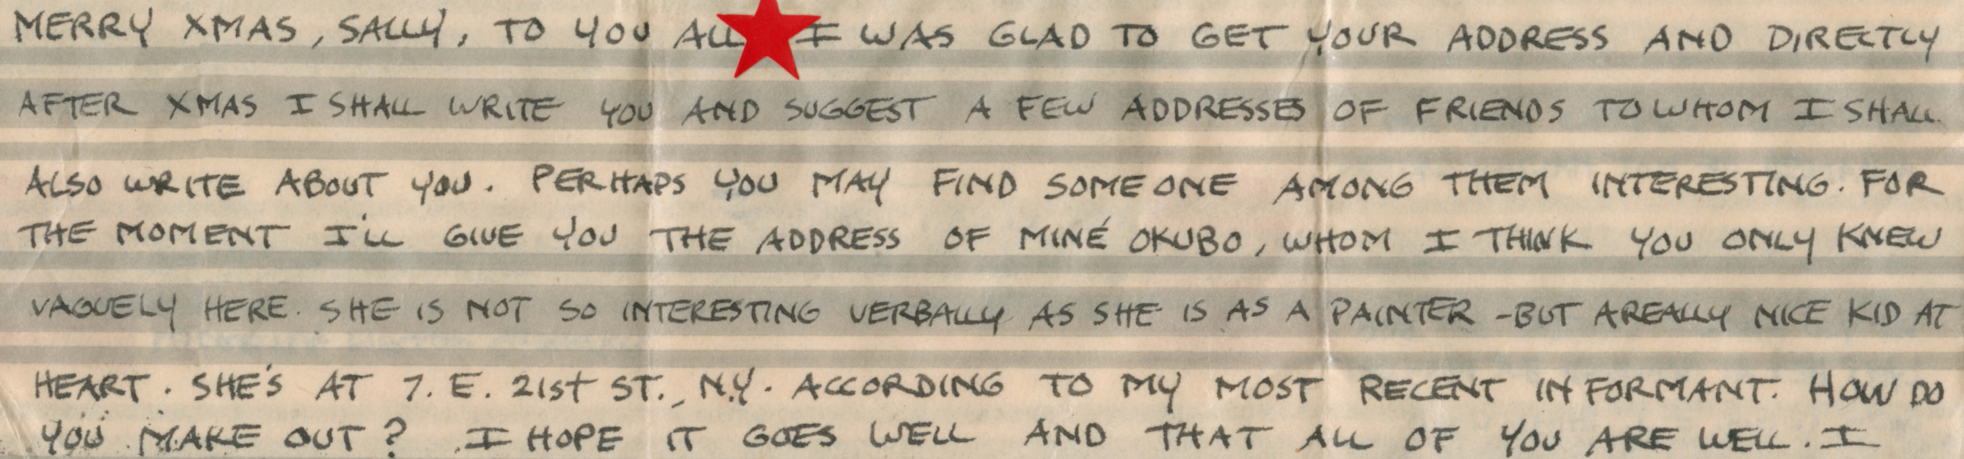 MERRY XMAS, SALLY, TO YOU ALL I WAS GLAD TO GET YOUR ADDRESS AND DIRECTLY
AFTER XMAS I SHALL WRITE YOU AND SUGGEST A FEW ADDRESSES OF FRIENDS TO WHOM I SHALL
ALSO WRITE ABOUT YOU. PERHAPS YOU MAY FIND SOMEONE AMONG THEM INTERESTING. FOR
THE MOMENT I'LL GIVE YOU THE ADDRESS OF MINÉ OKUBO, WHOM I THINK YOU ONLY KNEW
VAGUELY HERE. SHE IS NOT SO INTERESTING VERBALLY AS SHE IS AS A PAINTER - BUT A REALLY NICE KID AT
HEART. SHE'S AT 7. E. 21st ST., N.Y. ACCORDING TO MY MOST RECENT INFORMANT. HOW DO
YOU MAKE OUT? I HOPE IT GOES WELL AND THAT ALL OF YOU ARE WELL. I